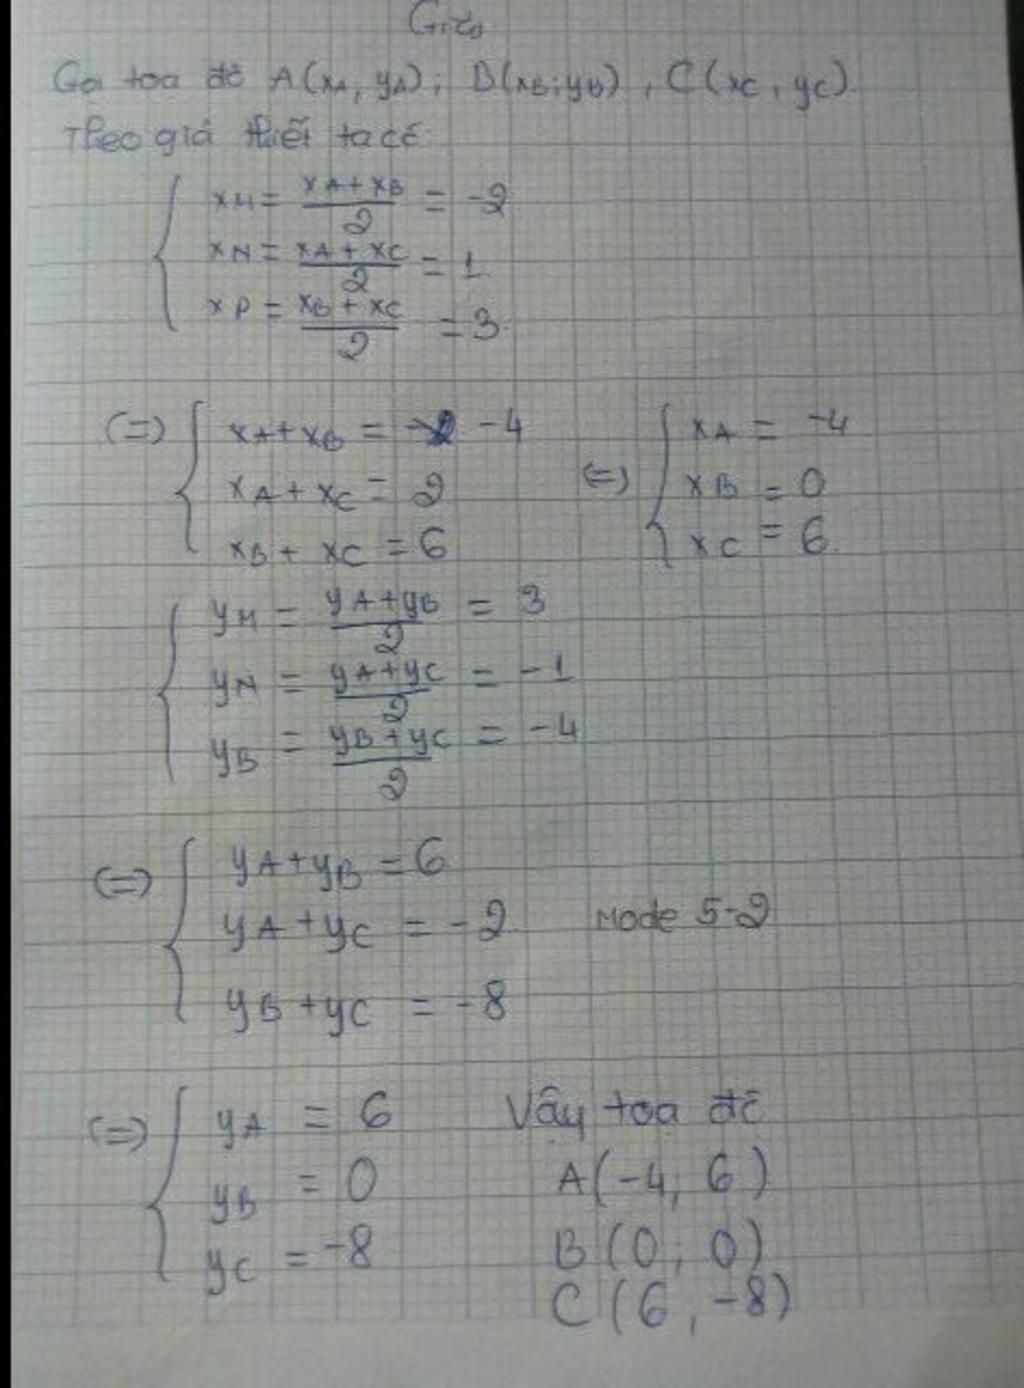 Giải
Gọi toạ độ A(xA, yA); B(xB; yB), C(xC, yC).
Theo giả thiết ta có
xM = xA + xB / 2 = -2
xN = xA + xC / 2 = 1
xP = xB + xC / 2 = 3
(=) xA + xB = -4 (=) xA = -4
xA + xC = 2 xB = 0
xB + xC = 6 xC = 6
yM = yA + yB / 2 = 3
yN = yA + yC / 2 = -1
yB = yB + yC / 2 = -4
(=) yA + yB = 6
yA + yC = -2 Mode 5-2
yB + yC = -8
(=) yA = 6 Vậy toạ độ
yB = 0 A(-4; 6)
yC = -8 B(0; 0)
C(6, -8)